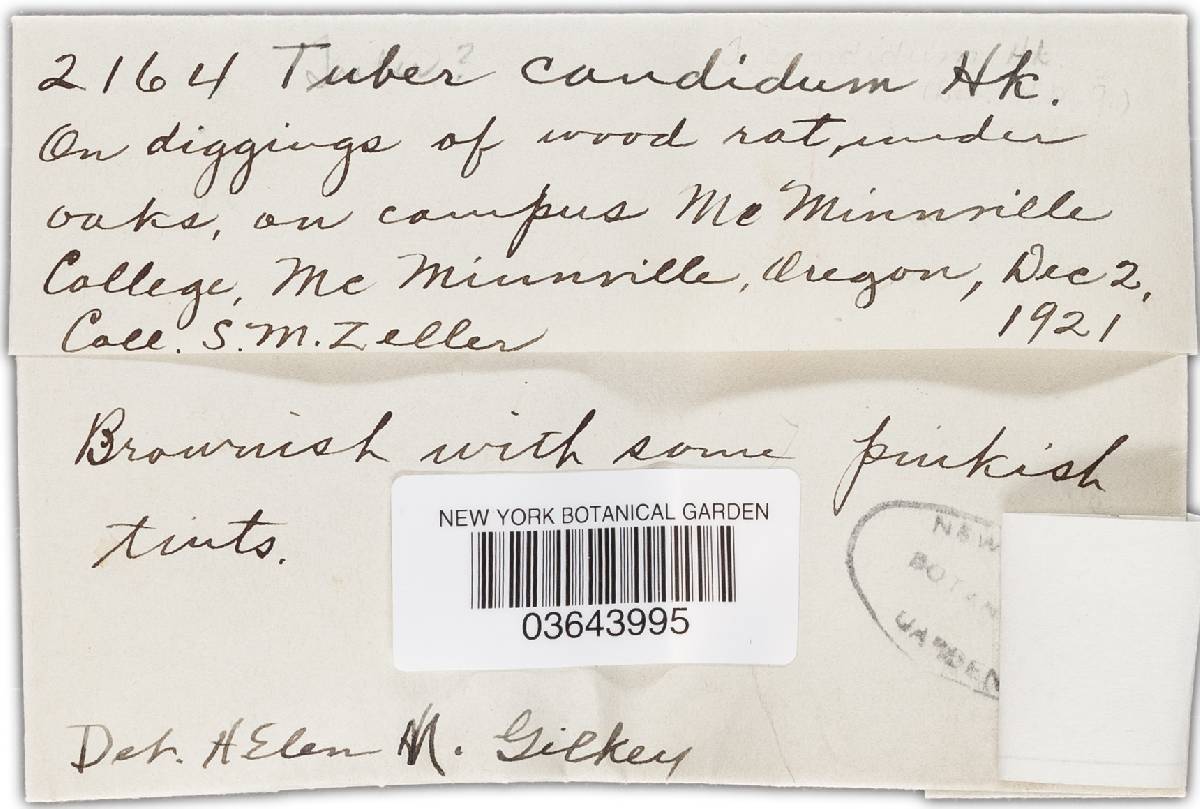 2164 Tuber candidum Hk.
On diggings of wood rat, under
oaks, on campus Mc Minnville
College, Mc Minnville, Oregon, Dec 2,
1921
Coll. S. M. Zeller
Brownish with some pinkish
tints.
NEW YORK BOTANICAL GARDEN
03643995
NEW
BOTAN
GARDEN
Det. HElen M. Gilkey